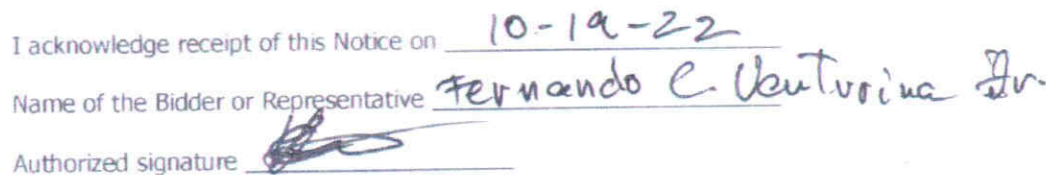 I acknowledge receipt of this Notice on 10-19-22
Name of the Bidder or Representative Fernando C. Venturina Jr.
Authorized signature